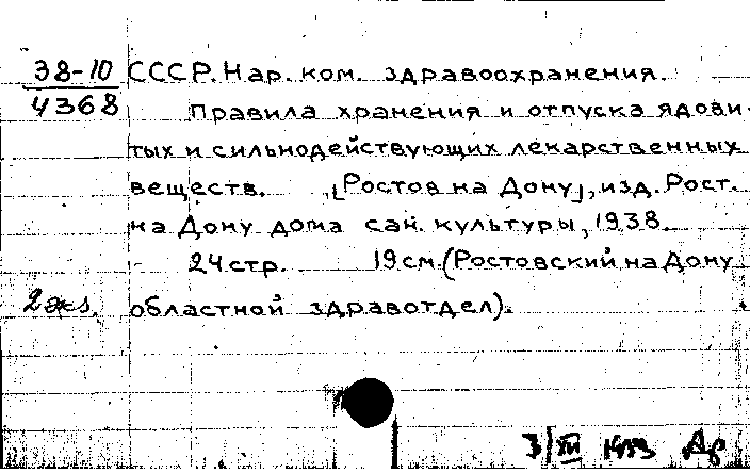 38-10 СССР. Нар. ком. здравоохранения.
4368 Правила хранения и отпуска ядови-
тых и сильнодействующих лекарственных
веществ. [Ростов на Дону], изд. Рост.
на Дону дома сан. культуры, 1938.
24 стр. 19 см (Ростовский на Дону
2 экз. областной здравотдел).
3/XII